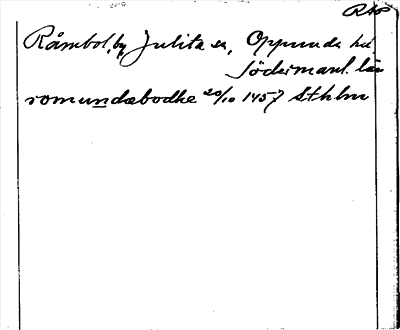 RAP
Råmbol, by, Julita sn, Oppunda hd
Södermanl. län
romundæbodhe 20/10 1457 Sthlm